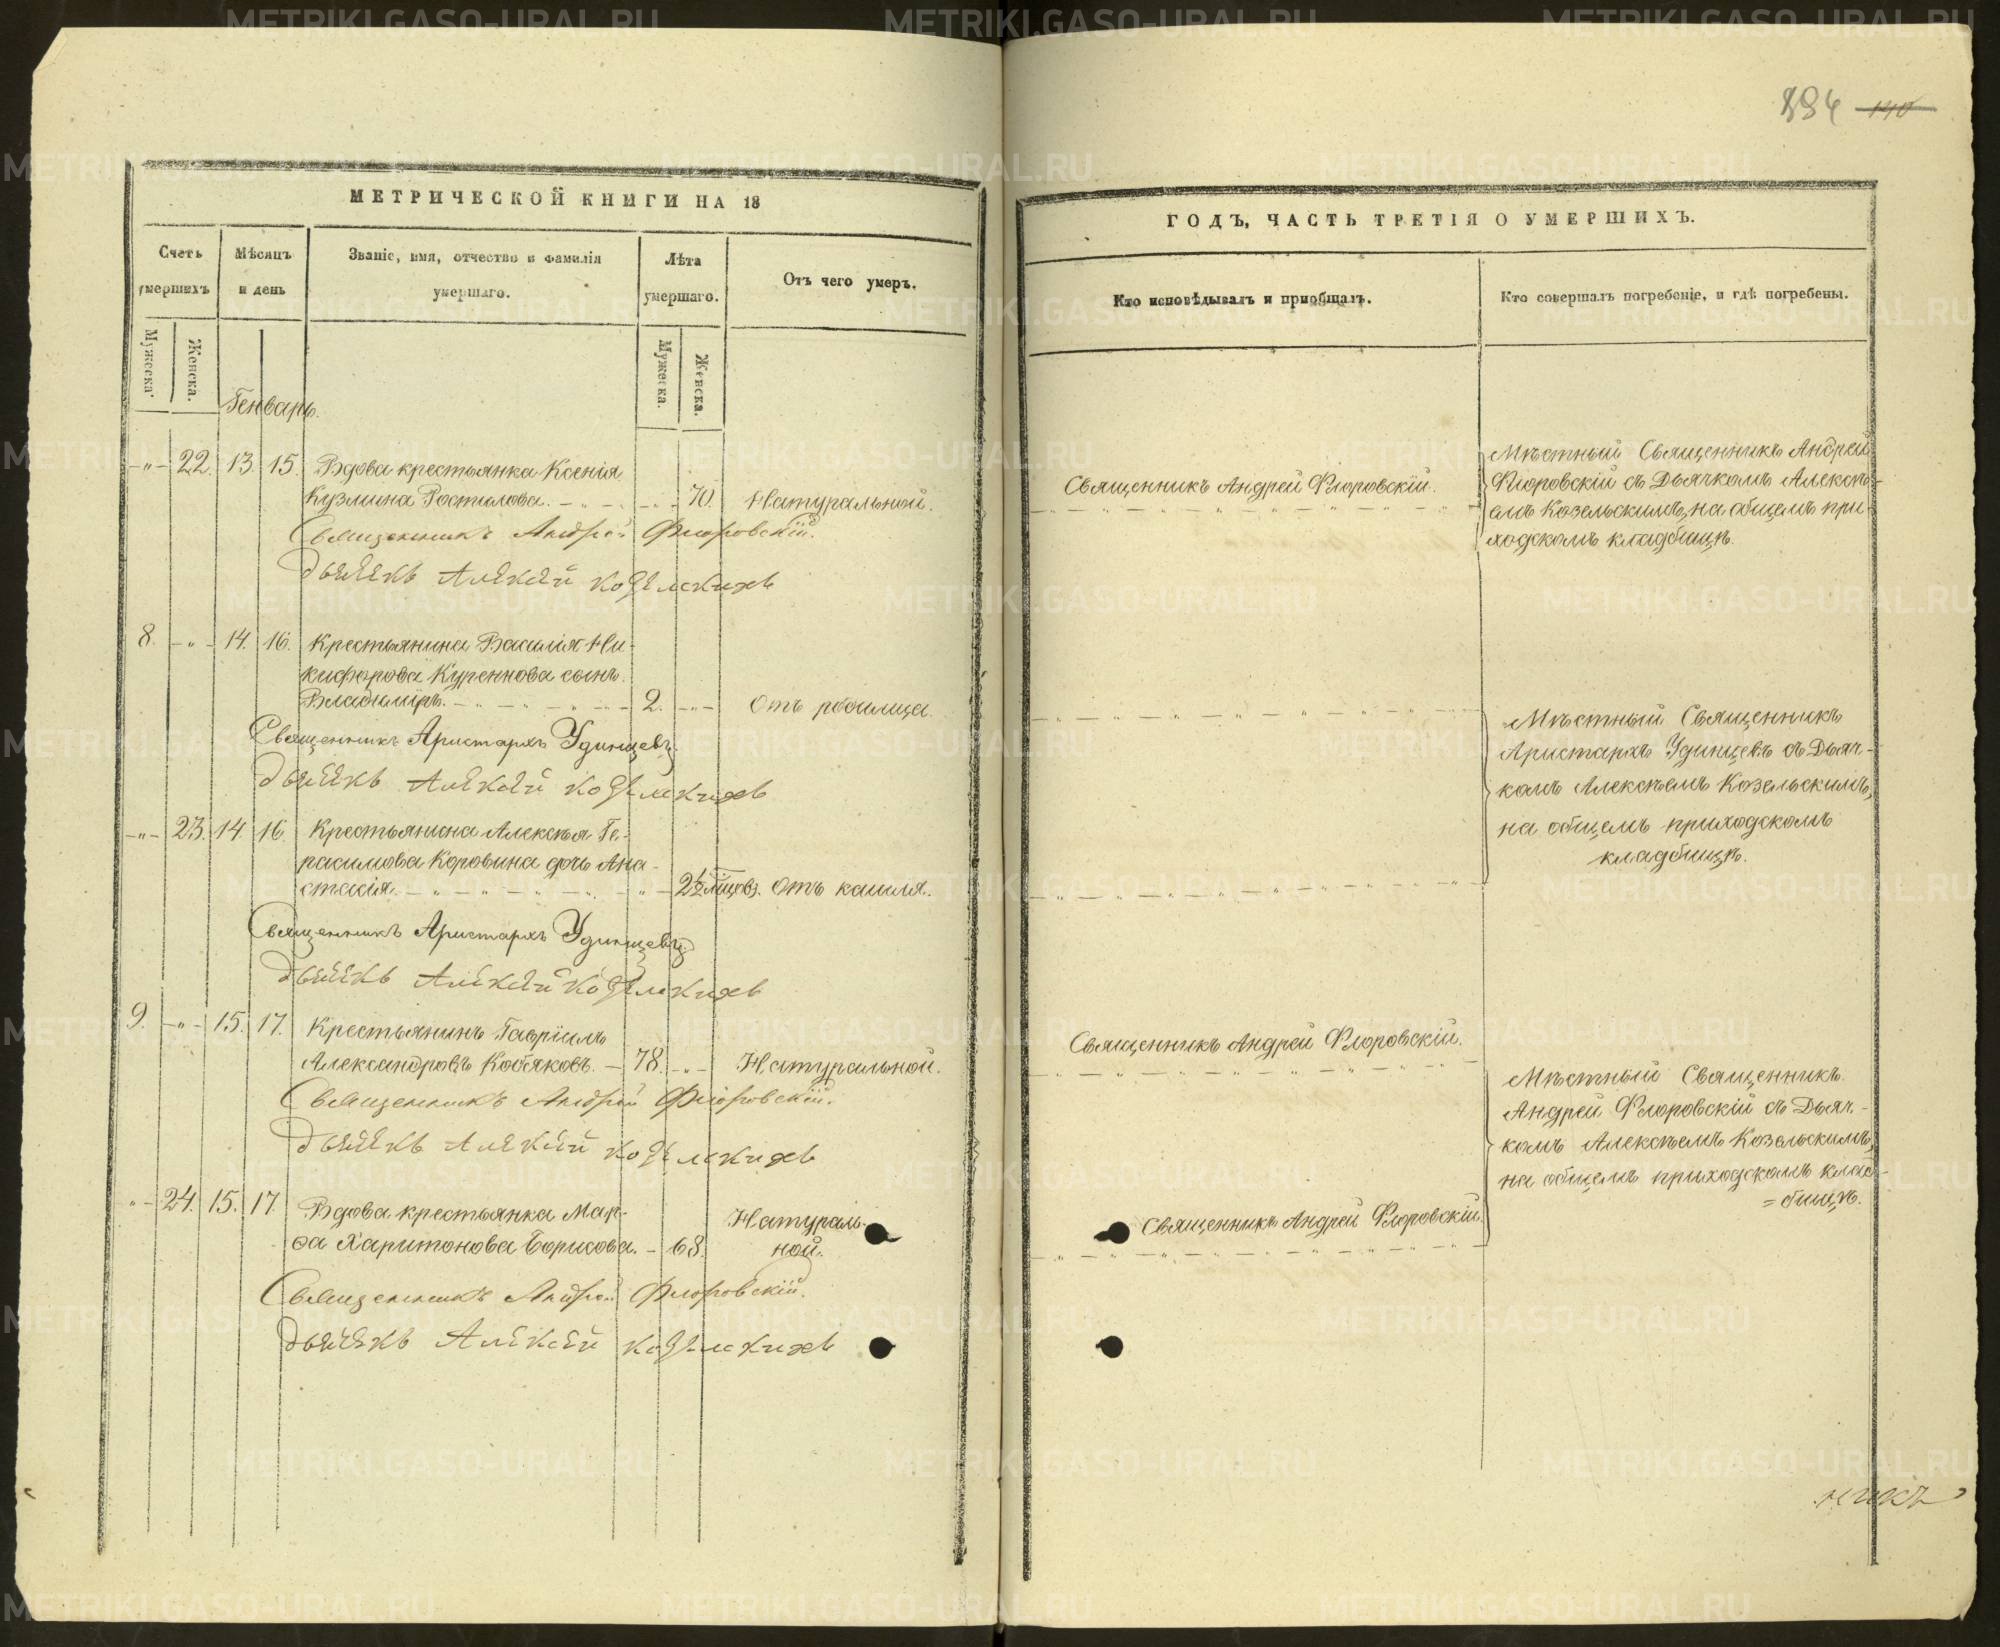 894 140
МЕТРИЧЕСКОЙ КНИГИ НА 18
Счетъ умершихъ
Мѣсяцъ и день
Званіе, имя, отчество и фамилія умершаго.
Лѣта умершаго.
Отъ чего умеръ.
Мужеска.
Женска.
Мужеска.
Женска.
Генварь.
-„- 22. 13. 15. Вдова крестьянка Ксенія
Кузмина Постилова. - 70. Натуральной.
Священникъ Андрей Флоровскій.
Дьячекъ Алексей Козелскихъ
8. -„- 14. 16. Крестьянина Василія Ни-
кифорова Куреннова сынъ
Владиміръ. - 2. -„- Отъ родимца.
Священникъ Аристархъ Удинцевъ.
Дьячекъ Алексей Козелскихъ
-„- 23. 14. 16. Крестьянина Алексѣя Ге-
расимова Коровина дочь Ана-
стасія. - 2½ мѣсяцов. Отъ кашля.
Священникъ Аристархъ Удинцевъ
Дьячекъ Алексей Козелскихъ
9. -„- 15. 17. Крестьянинъ Гавріилъ
Александровъ Кобяковъ. - 78. -„- Натуральной.
Священникъ Андрей Флоровскій.
Дьячекъ Алексей Козелскихъ
„- 24. 15. 17. Вдова крестьянка Мар- Натураль-
ѳа Харитонова Борисова. - 68. ной.
Священникъ Андрей Флоровскій.
Дьячекъ Алексей Козелскихъ
ГОДЪ, ЧАСТЬ ТРЕТІЯ О УМЕРШИХЪ.
Кто исповѣдывалъ и приобщалъ.
Кто совершалъ погребеніе, и гдѣ погребены.
Священникъ Андрей Флоровскій.
Мѣстный Священникъ Андрей
Флоровскій съ Дьячкомъ Алексѣ-
емъ Козельскимъ, на общемъ при-
ходскомъ кладбищѣ.
Мѣстный Священникъ
Аристархъ Удинцевъ съ Дьяч-
комъ Алексѣемъ Козельскимъ,
на общемъ приходскомъ
кладбищѣ.
Священникъ Андрей Флоровскій.
Мѣстный Священникъ
Андрей Флоровскій съ Дьяч-
комъ Алексѣемъ Козельскимъ,
на общемъ приходскомъ клад-
=бищѣ.
Священникъ Андрей Флоровскій.
никъ
METRIKI.GASO-URAL.RU